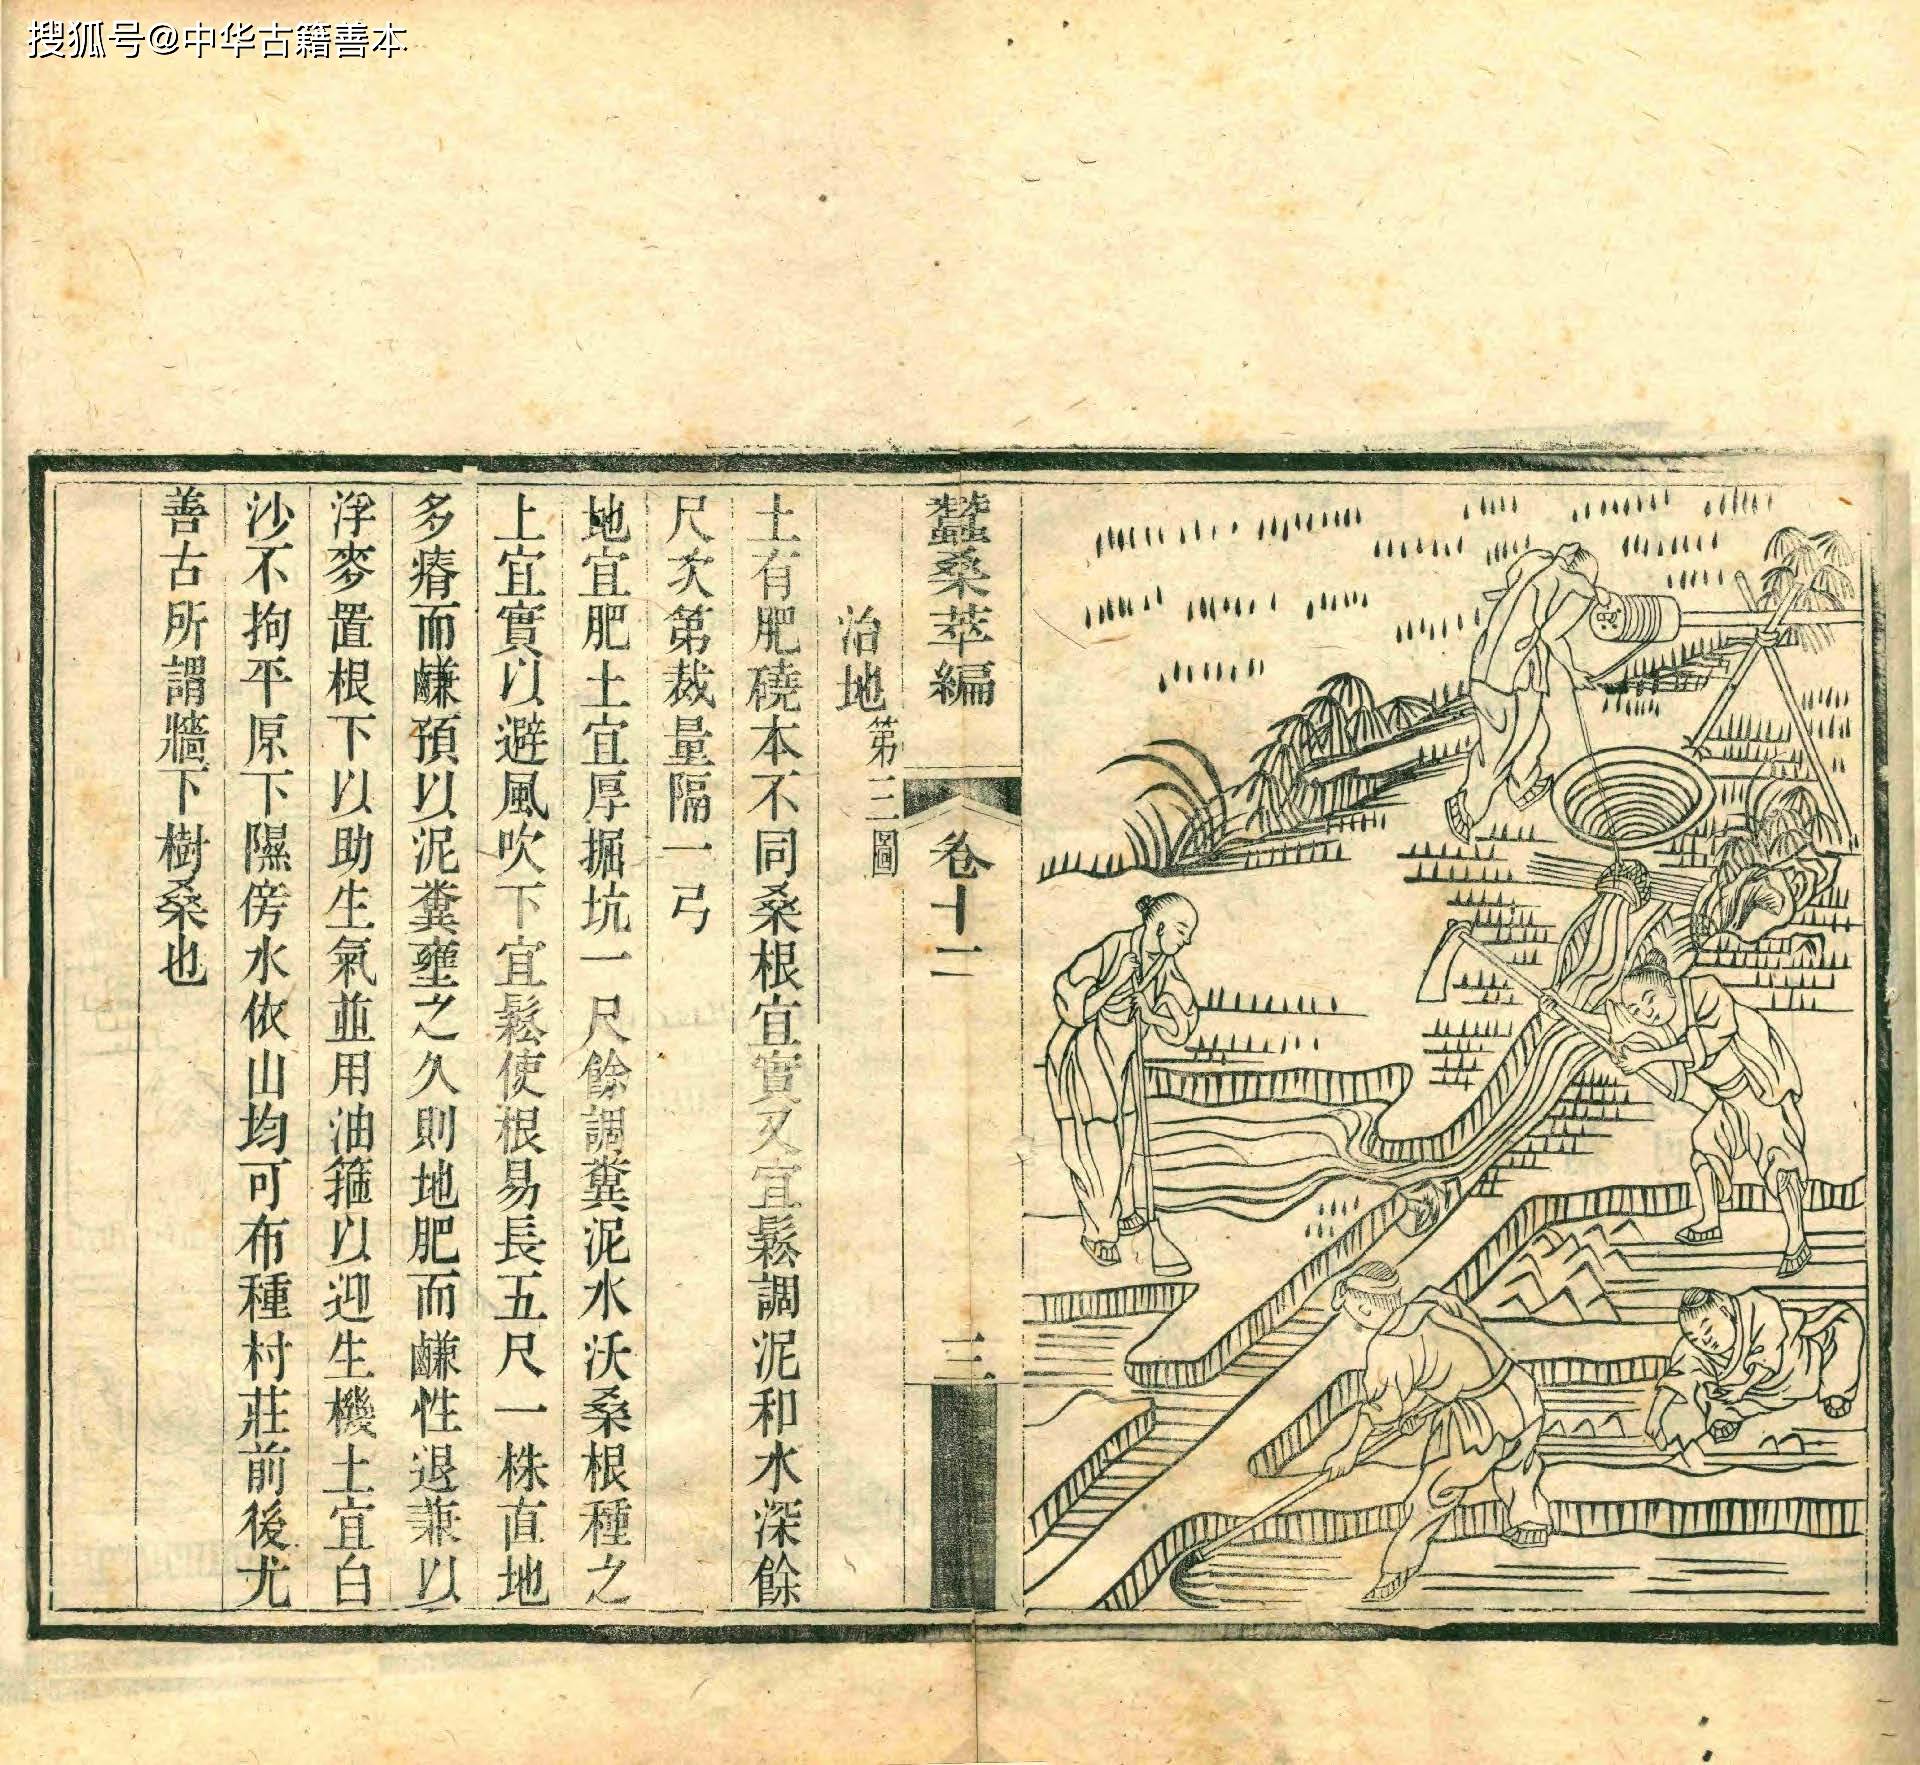 搜狐号@中华古籍善本
蠶桑萃編
卷十二
三
治地第三圖
土有肥磽本不同桑根宜實又宜鬆調泥和水深餘
尺次第裁量隔一弓
地宜肥土宜厚掘坑一尺餘調糞泥水沃桑根種之
上宜實以避風吹下宜鬆使根易長五尺一株直地
多瘠而鹻預以泥糞壅之久則地肥而鹻性退兼以
浮麥置根下以助生氣並用油箍以迎生機土宜白
沙不拘平原下隰傍水依山均可布種村莊前後尤
善古所謂牆下樹桑也